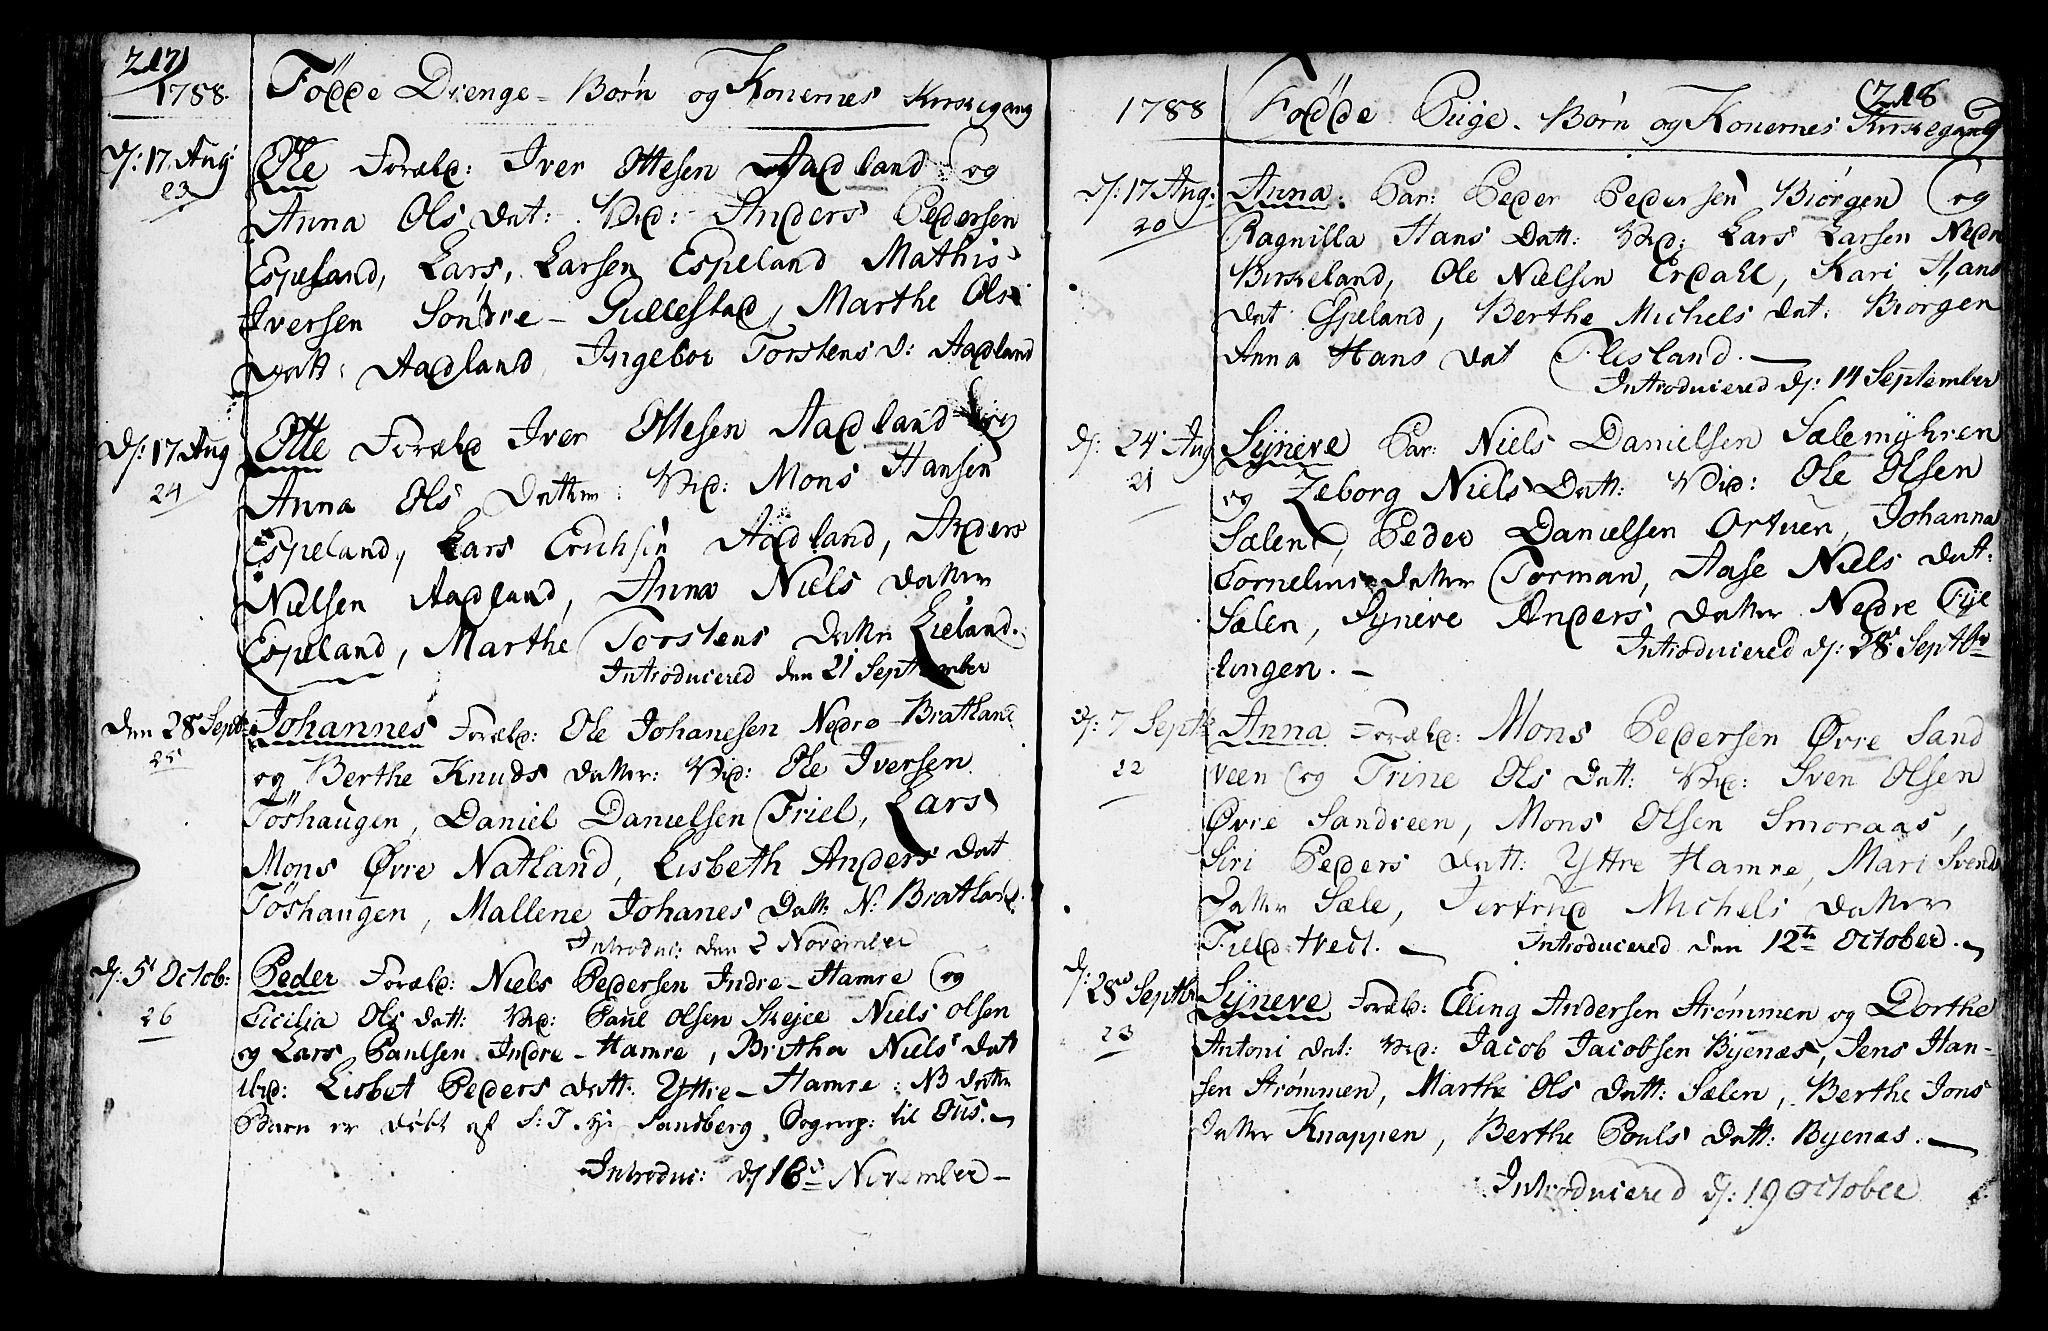 217)
1788.
Födde Drenge-Börn og Konernes Kirkegang
d: 17 Aug:
23
Ole Foræld: Iver Ottesen Aadland og
Anna Ols Dat: Vid: Anders Pedersen
Espeland, Lars Larsen Espeland Mathis
Iversen Söndre-Gullestad, Marthe Ols
Datt: Aadland, Ingebor Torstens D: Aadland
d: 17 Aug
24
Otte Foræld Iver Ottesen Aadland og
Anna Ols Datter: Vid: Mons Hansen
Espeland, Lars Erichsen Aadland, Anders
Nielsen Aadland, Anna Niels Datter
Espeland, Marthe Torstens Datter Lieland.
Introducered den 21 September
Den 28 Sept:
25
Johannes Foræld: Ole Johanesen Nedre-Bratland
og Berthe Knuds Datter: Vid: Ole Iversen
Töshaugen, Daniel Danielsen Friel, Lars
Mons Øvre Natland, Lisbeth Anders Dat
Töshaugen, Mallene Johanes Datt: N: Bratland.
Introduc: den 2 November
d: 5 Octob:
26
Peder Foræld: Niels Pedersen Indre-Hamre og
Cicilia Ols Datt: Vid: Paul Olsen Skeje Niels Olsen
og Lars Paulsen Indre-Hamre, Britha Niels Dat
ibid: Lisbet Peders Datt: Yttre-Hamre: NB dette
Barn er döbt af S: T. Hr Sandberg, Sognep: til Ous.
Introduc: d 16 November
1788
(218
Födde Pige-Börn og Konernes Kirkegang
d: 17 Aug:
20
Anna. Par: Peder Pedersen Biörgen og
Ragnilla Hans Datt: Vid: Lars Larsen Nedre
Birkeland, Ole Nielsen Erdahl, Kari Hans
Dat Espeland, Berthe Michels Dat: Biörgen
Anna Hans Dat Flesland.
Introducered d: 14 September
d: 24 Aug
21
Syneve Par: Niels Danielsen Sælemyhren
og Zeborg Niels Datt: Vid: Ole Olsen
Sælen, Peder Danielsen Ortuen, Johanna
Cornelius Datter Torman, Aase Niels Dat:
Sælen, Syneve Anders Datter Nedre Fyl
lingen.
Introducered d: 28 Septbr
d: 7 Septbr
22
Anna Foræld: Mons Pedersen Øvre Sand
veen og Trine Ols Datt: Vid: Sven Olsen
Øvre Sandveen, Mons Olsen Smoraas,
Siri Peders Datt: Yttre Hamre, Mari Svends
Datter Sæle, Jertrud Michels Datter
Field-Tvedt.
Introducered den 12te October.
d: 28 Septbr
23
Syneve Foræld: Elling Andersen Strømmen og Dorthe
Antoni Dat: Vid: Jacob Jacobsen Byenæs, Jens Han-
sen Strømmen, Marthe Ols Datt: Sælen, Berthe Jons
Datter Knappen, Berthe Pouls Datt: Byenæs.
Introducered d: 19 October